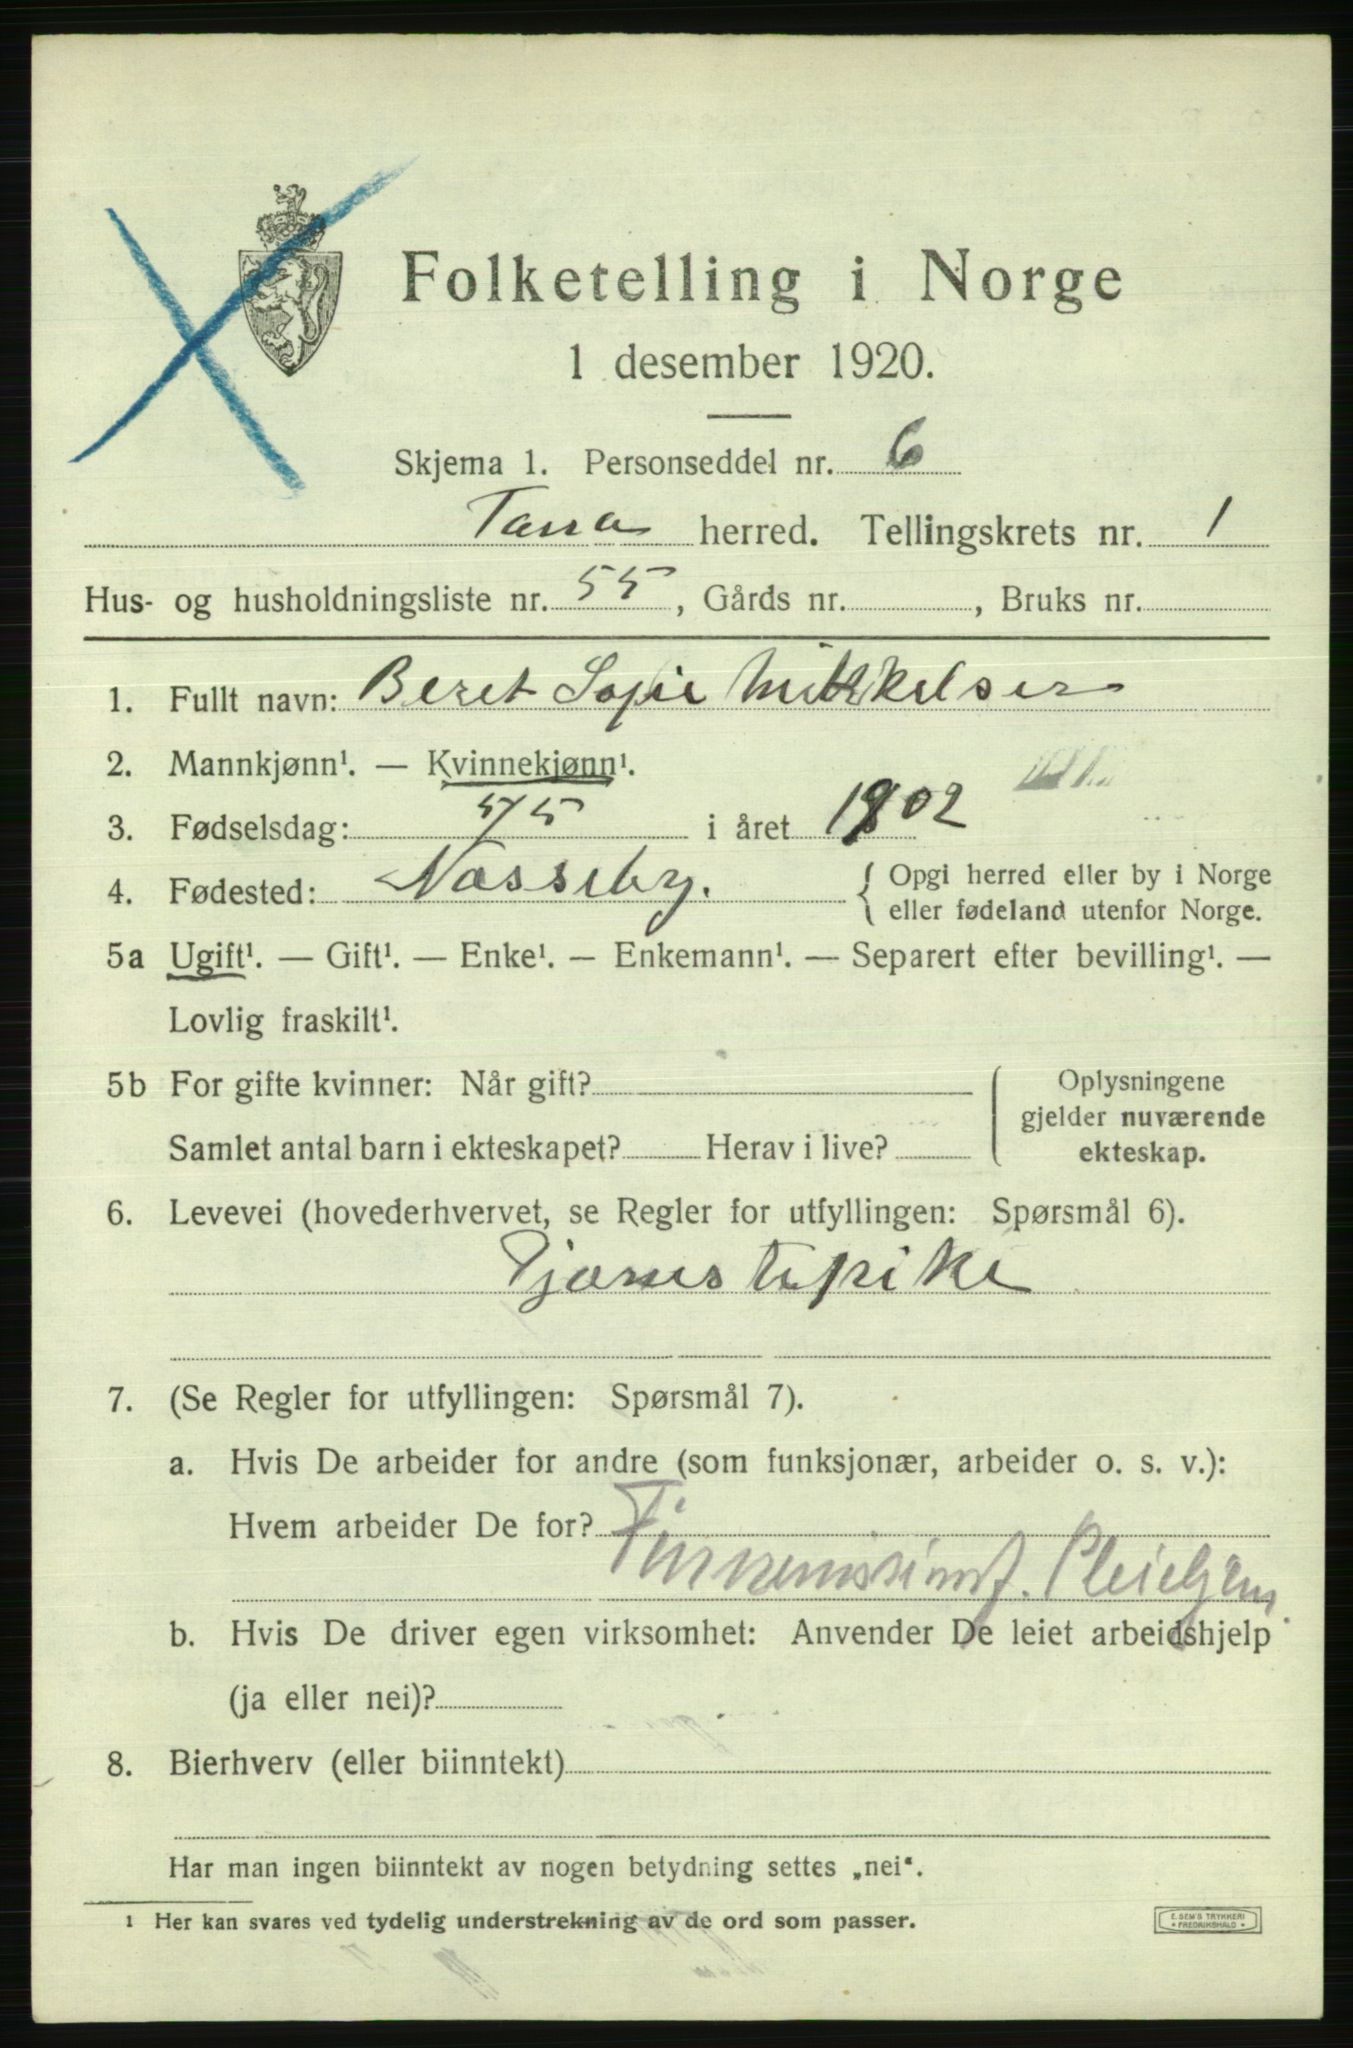 Folketelling i Norge
1 desember 1920.
Skjema 1. Personseddel nr. 6
Tana herred. Tellingskrets nr. 1
Hus- og husholdningsliste nr. 55, Gårds nr. , Bruks nr.
1. Fullt navn: Beret Sofie Mikkelsen
2. Mannkjønn¹. — Kvinnekjønn¹.
3. Fødselsdag: 5/5 i året 1902
4. Fødested: Nesseby. { Opgi herred eller by i Norge
eller fødeland utenfor Norge.
5a Ugift¹. — Gift¹. — Enke¹. — Enkemann¹. — Separert efter bevilling¹. —
Lovlig fraskilt¹.
5b For gifte kvinner: Når gift? ( Oplysningene
gjelder nuværende
Samlet antal barn i ekteskapet? Herav i live? ekteskap.
6. Levevei (hovederhvervet, se Regler for utfyllingen: Spørsmål 6).
Tjenestepike
7. (Se Regler for utfyllingen: Spørsmål 7).
a. Hvis De arbeider for andre (som funksjonær, arbeider o. s. v.):
Hvem arbeider De for?
b. Hvis De driver egen virksomhet: Anvender De leiet arbeidshjelp
(ja eller nei)?
8. Bierhverv (eller biinntekt)
Har man ingen biinntekt av nogen betydning settes „nei“.
¹ Her kan svares ved tydelig understrekning av de ord som passer.
E. SEM'S TRYKKERI
FREDRIKSHALD